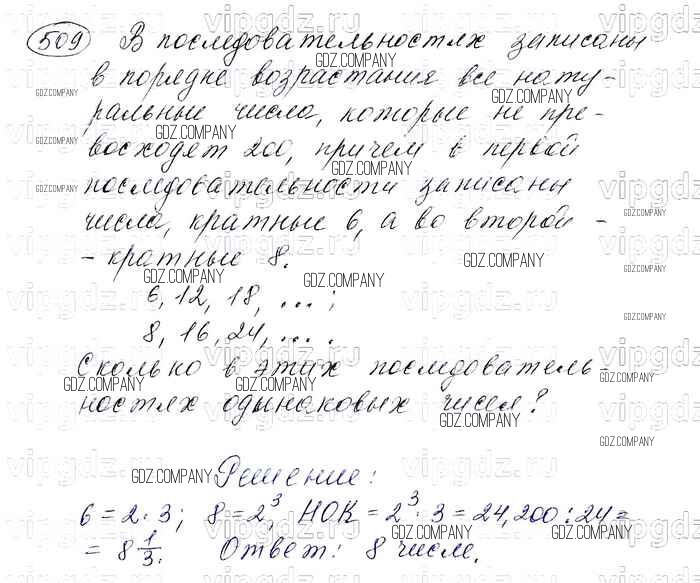 509 В последовательностях записаны
в порядке возрастания все нату-
ральные числа, которые не пре-
восходят 200, причем в первой
последовательности записаны
числа, кратные 6, а во второй -
- кратные 8.
6, 12, 18, ... ;
8, 16, 24, ... .
Сколько в этих последователь-
ностях одинаковых чисел?
Решение:
6 = 2 · 3; 8 = 2³, НОК = 2³ · 3 = 24, 200 : 24 =
= 8 1/3. Ответ: 8 чисел.
vipgdz.ru
GDZ.COMPANY